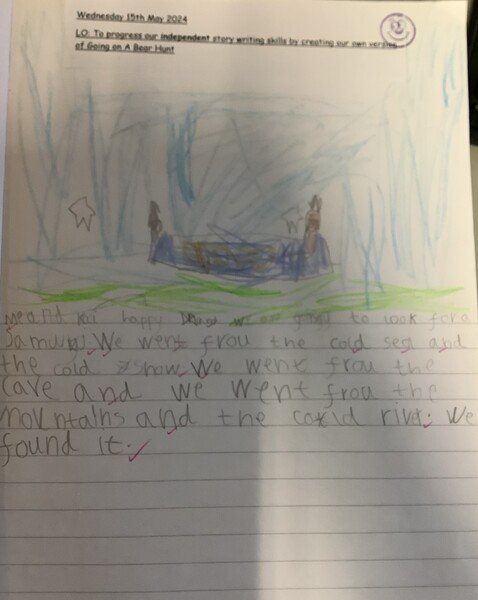 Wednesday 15th May 2024
LO: To progress our independent story writing skills by creating our own version
of Going on A Bear Hunt
me and Kai happy we are going to look for a
Samuraj. We went frou the cold sea and
the cold snow. We went frou the
cave and we went frou the
mountains and the could river. We
found it.